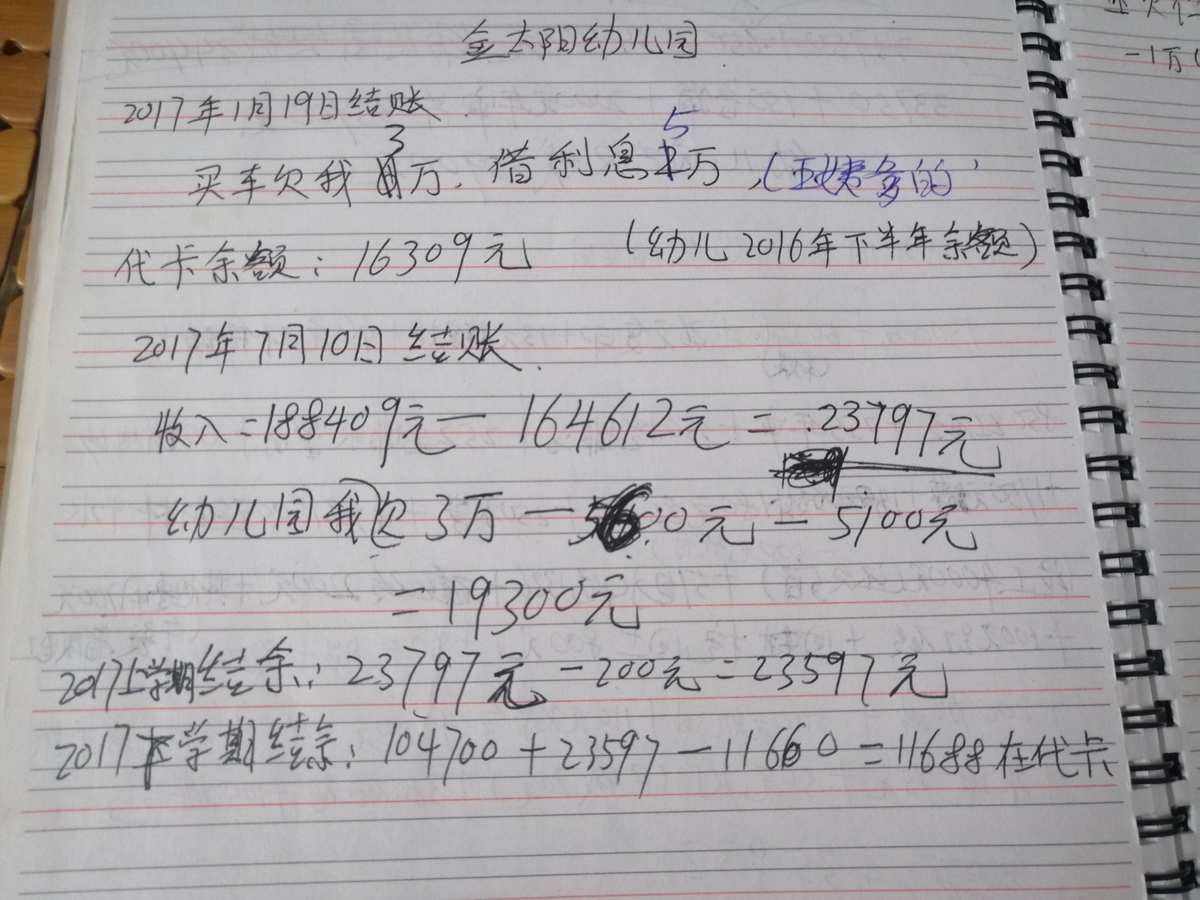 金太阳幼儿园
2017年1月19日结账
买车欠我3万. 借利息5万,(
的
代卡余额: 16309元 (幼儿2016年下半年余额)
2017年7月10日结账.
收入=188409元—164612元=23797元
幼儿园我欠3万— 00元—5100元
=19300元
2017上学期结余: 23797元-200元=23597元
2017下学期结余: 104700+23597-11660=11688在代卡
-1万